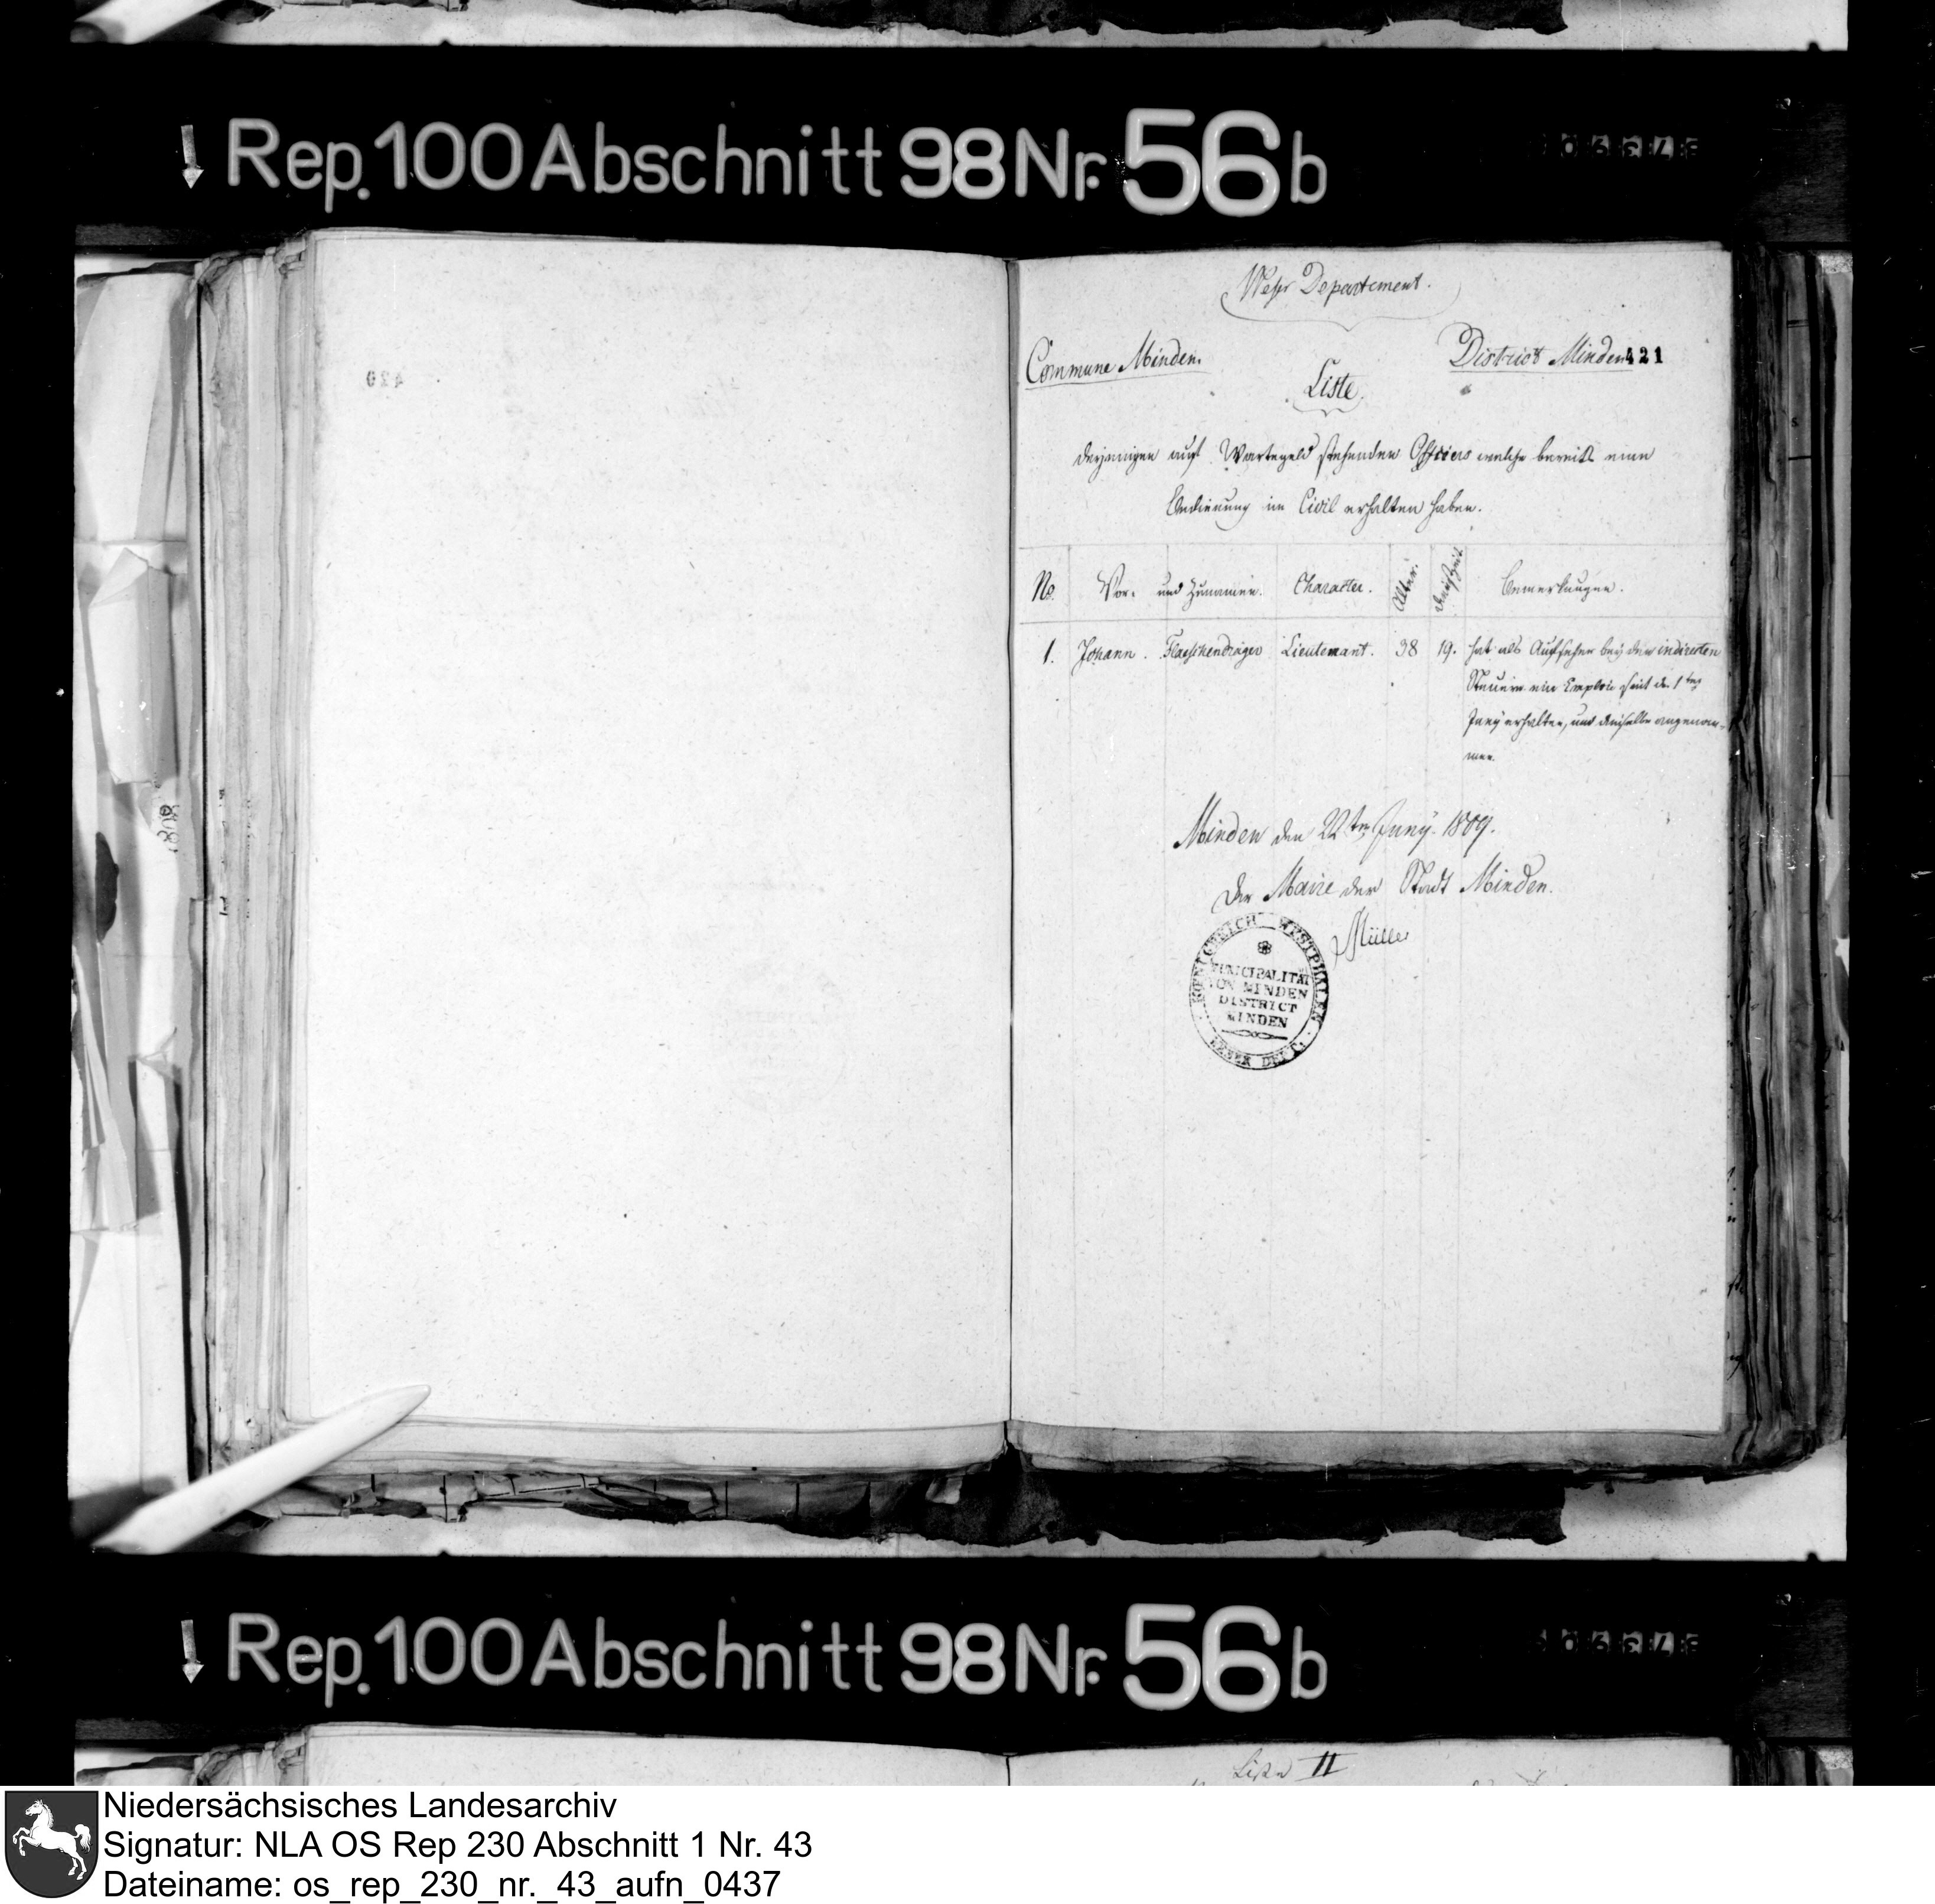 Rep. 100 Abschnitt 98 Nr. 56 b
Weser Departement.
Commune Minden.
District Minden 421
420
Liste
derjenigen auf Wartegeld stehenden Officiers welche bereits eine
Bedienung im Civil erhalten haben.
No. Vor- und Zunamen. Character. Alter. Dienstzeit Bemerkungen.
1. Johann Flaeschendräger Lieutenant. 38 19. hat als Aufseher bey den indirecten
Steuern ein Emploi seit d. 1ten
Juny erhalten, und dasselbe angenom-
men.
Minden den 22ten Juny. 1809.
Der Maire der Stadt Minden.
Müller
KOENIGREICH WESTPHALEN
MUNICIPALITÄT
VON MINDEN
DISTRICT
MINDEN
WESER DEPT.
1808
Rep. 100 Abschnitt 98 Nr. 56 b
Liste II
Niedersächsisches Landesarchiv
Signatur: NLA OS Rep 230 Abschnitt 1 Nr. 43
Dateiname: os_rep_230_nr._43_aufn_0437